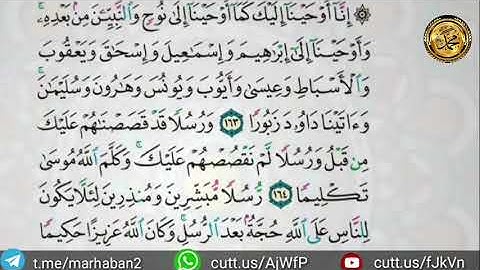 ۞ إِنَّآ أَوْحَيْنَآ إِلَيْكَ كَمَآ أَوْحَيْنَآ إِلَىٰ نُوحٍ وَٱلنَّبِيِّـۧنَ مِنۢ بَعْدِهِۦ ۚ
وَأَوْحَيْنَآ إِلَىٰٓ إِبْرَٰهِيمَ وَإِسْمَـٰعِيلَ وَإِسْحَـٰقَ وَيَعْقُوبَ
وَٱلْأَسْبَاطِ وَعِيسَىٰ وَأَيُّوبَ وَيُونُسَ وَهَـٰرُونَ وَسُلَيْمَـٰنَ ۚ
وَءَاتَيْنَا دَاوُۥدَ زَبُورًا ١٦٣ وَرُسُلًا قَدْ قَصَصْنَـٰهُمْ عَلَيْكَ
مِن قَبْلُ وَرُسُلًا لَّمْ نَقْصُصْهُمْ عَلَيْكَ ۚ وَكَلَّمَ ٱللَّهُ مُوسَىٰ
تَكْلِيمًا ١٦٤ رُّسُلًا مُّبَشِّرِينَ وَمُنذِرِينَ لِئَلَّا يَكُونَ
لِلنَّاسِ عَلَى ٱللَّهِ حُجَّةٌۢ بَعْدَ ٱلرُّسُلِ ۚ وَكَانَ ٱللَّهُ عَزِيزًا حَكِيمًا
محمد
t.me/marhaban2 cutt.us/AjWfP cutt.us/fJkVn